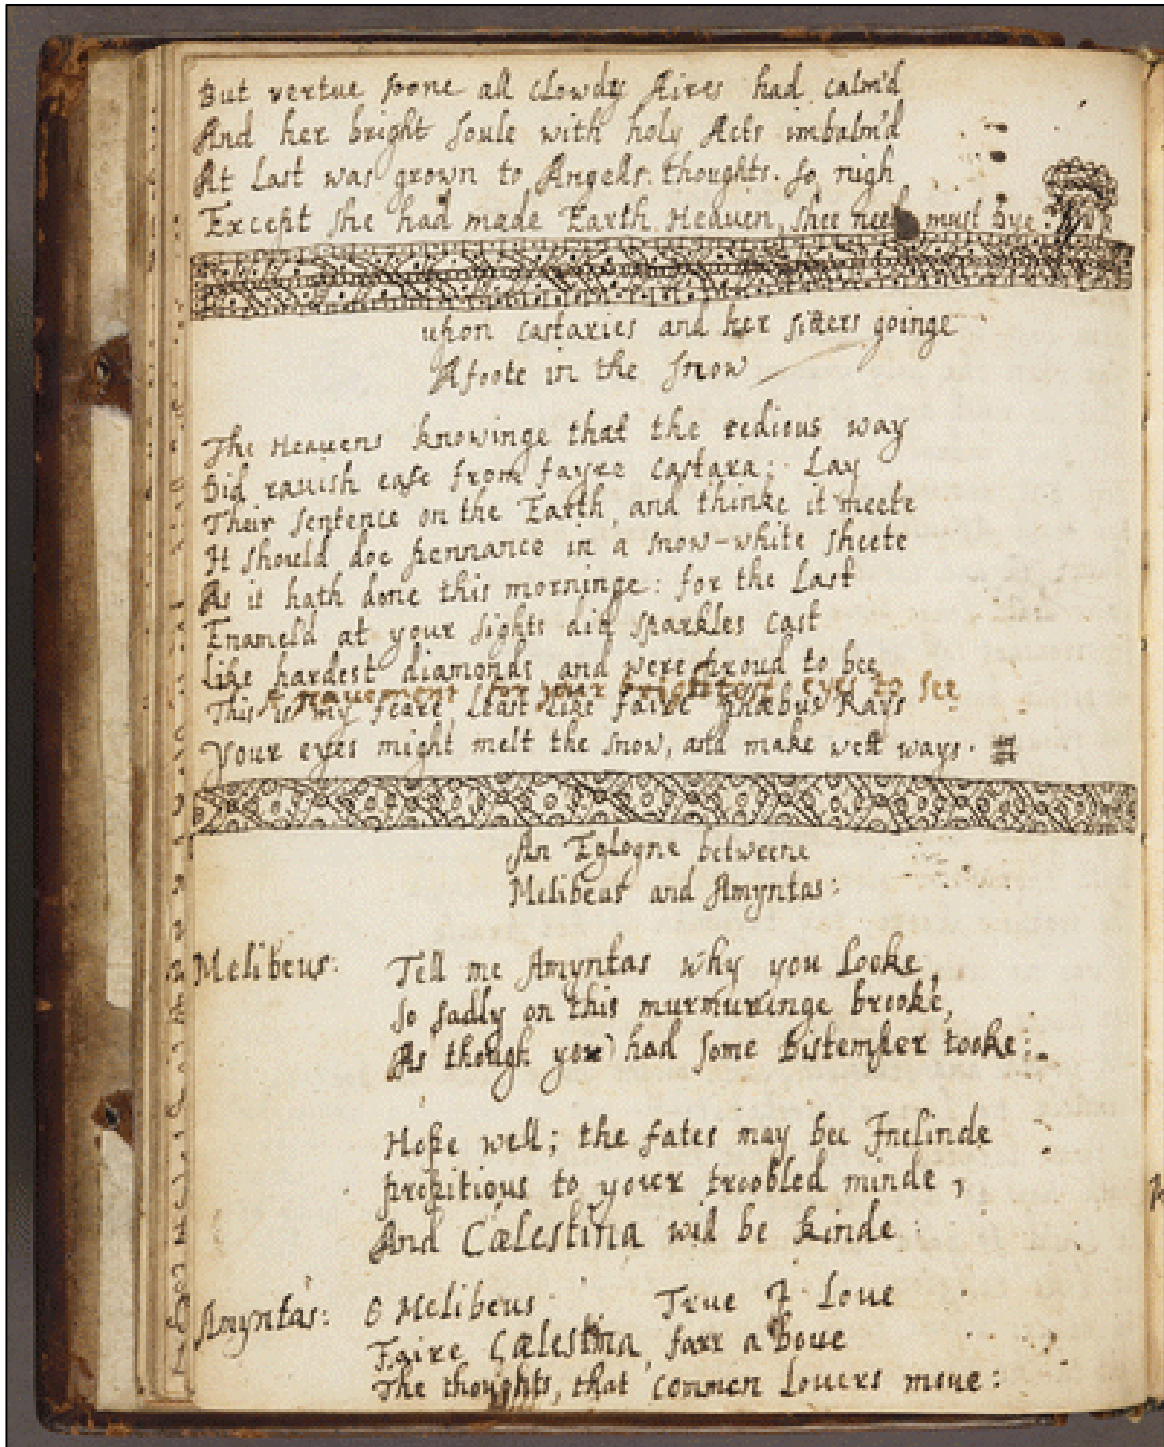 But vertue soone all clowdy Aires had calm'd
And her bright soule with holy Acts imbalm'd
At last was grown to Angells thoughts. so nigh
Except she had made Earth Heaven, shee must Dye:
upon castaries and her sisters goinge
Afoote in the snow
The Heauens knowinge that the tedious way
Did rauish ease from fayre castara; Lay
Their sentence on the Earth, and thinke it meete
It should doe pennance in a snow-white sheete
As it hath done this morninge: for the last
Enameld at your sights did sparkles cast
Like hardest diamonds and were proud to bee
A pauement for your brightest eyes to see
This is my feare, least like faire Phœbus Rays
Your eyes might melt the snow, and make wett ways.
An Eglogne betweene
Melibeus and Amyntas:
Melibeus: Tell me Amyntas why you Looke
so sadly on this murmuringe brooke,
As though you had some Distemper tooke:
Hope well; the fates may bee Inclinde
propitious to youer troobled minde,
And Cælestina will be kinde
Amyntas: O Melibeus True I Loue
Faire Cælestina farr aboue
The thoughts, that commen Louers moue: